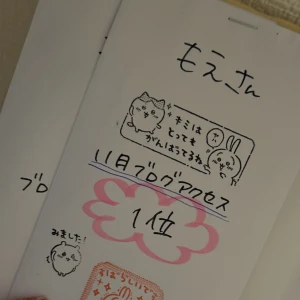 もえさん
キミは
とっても
がんばってるね
11月ブログアクセス
1位
みました!
すばらしいです
ブロ